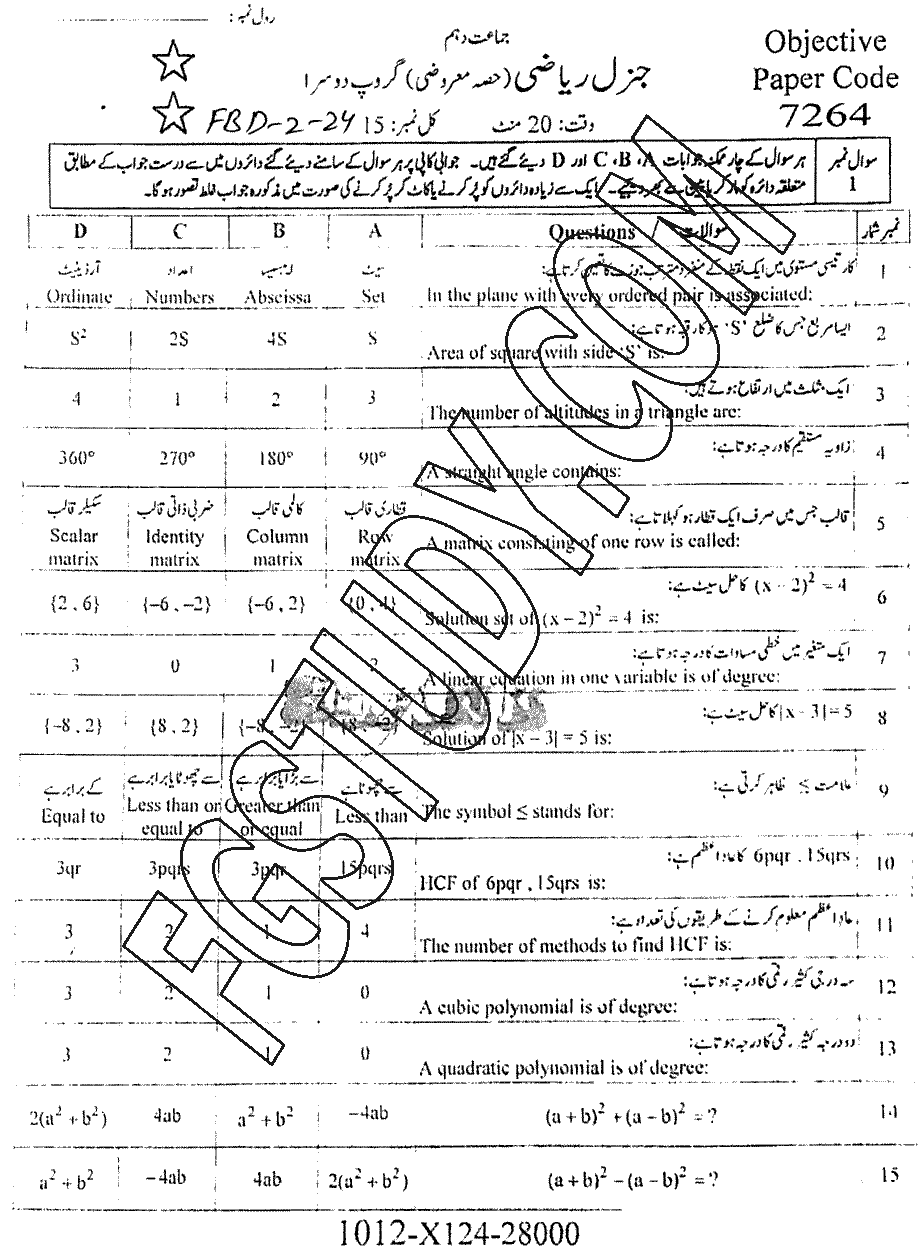 رول نمبر:
جماعت دہم
جنرل ریاضی (حصہ معروضی) گروپ دوسرا
Objective
Paper Code
7264
وقت: 20 منٹ کل نمبر: 15
FBD-2-24
سوال نمبر 1
ہر سوال کے چار ممکنہ جوابات A، B، C اور D دیئے گئے ہیں۔ جوابی کاپی پر ہر سوال کے سامنے دیئے گئے دائروں میں سے درست جواب کے مطابق
متعلقہ دائرہ کو مارکر یا پین سے بھر دیجیے۔ ایک سے زیادہ دائروں کو پُر کرنے یا کاٹ کر پُر کرنے کی صورت میں مذکورہ جواب غلط تصور ہو گا۔
D C B A Questions / سوالات نمبر شمار
1 کارتیسی مستوی میں ایک نقطہ کے منفرد مترتب جوڑے کا تعین کرتا ہے:
In the plane with every ordered pair is associated:
آرڈینیٹ اعداد ایبسیسا سیٹ
Ordinate Numbers Abscissa Set
2 ایسا مربع جس کا ضلع 'S' ہو کا رقبہ ہوتا ہے:
Area of square with side 'S' is:
S² 2S 4S S
3 ایک مثلث میں ارتفاع ہوتے ہیں:
The number of altitudes in a triangle are:
4 1 2 3
4 زاویہ مستقیم کا درجہ ہوتا ہے:
A straight angle contains:
360° 270° 180° 90°
5 قالب جس میں صرف ایک قطار ہو کہلاتا ہے:
A matrix consisting of one row is called:
سکیلر قالب ضربی ذاتی قالب کالمی قالب قطاری قالب
Scalar matrix Identity matrix Column matrix Row matrix
6 (x − 2)² = 4 کا حل سیٹ ہے:
Solution set of (x − 2)² = 4 is:
{2 , 6} {−6 , −2} {−6 , 2} {0 , 4}
7 ایک متغیر میں خطی مساوات کا درجہ ہوتا ہے:
A linear equation in one variable is of degree:
3 0 1 2
8 |x − 3| = 5 کا حل سیٹ ہے:
Solution of |x − 3| = 5 is:
{−8 , 2} {8 , 2} {−8 , −2} {8 , −2}
9 علامت ≤ ظاہر کرتی ہے:
The symbol ≤ stands for:
کے برابر ہے سے چھوٹا یا برابر ہے سے بڑا یا برابر ہے سے چھوٹا ہے
Equal to Less than or equal to Greater than or equal Less than
10 6pqr , 15qrs کا عاد اعظم ہے:
HCF of 6pqr , 15qrs is:
3qr 3pqrs 3pqr 15pqrs
11 عاد اعظم معلوم کرنے کے طریقوں کی تعداد ہے:
The number of methods to find HCF is:
3 2 1 4
12 سہ درجی کثیر رقمی کا درجہ ہوتا ہے:
A cubic polynomial is of degree:
3 2 1 0
13 دو درجہ کثیر رقمی کا درجہ ہوتا ہے:
A quadratic polynomial is of degree:
3 2 1 0
14 (a + b)² + (a − b)² = ?
2(a² + b²) 4ab a² + b² −4ab
15 (a + b)² − (a − b)² = ?
a² + b² −4ab 4ab 2(a² + b²)
1012-X124-28000
FGSTUDY.COM